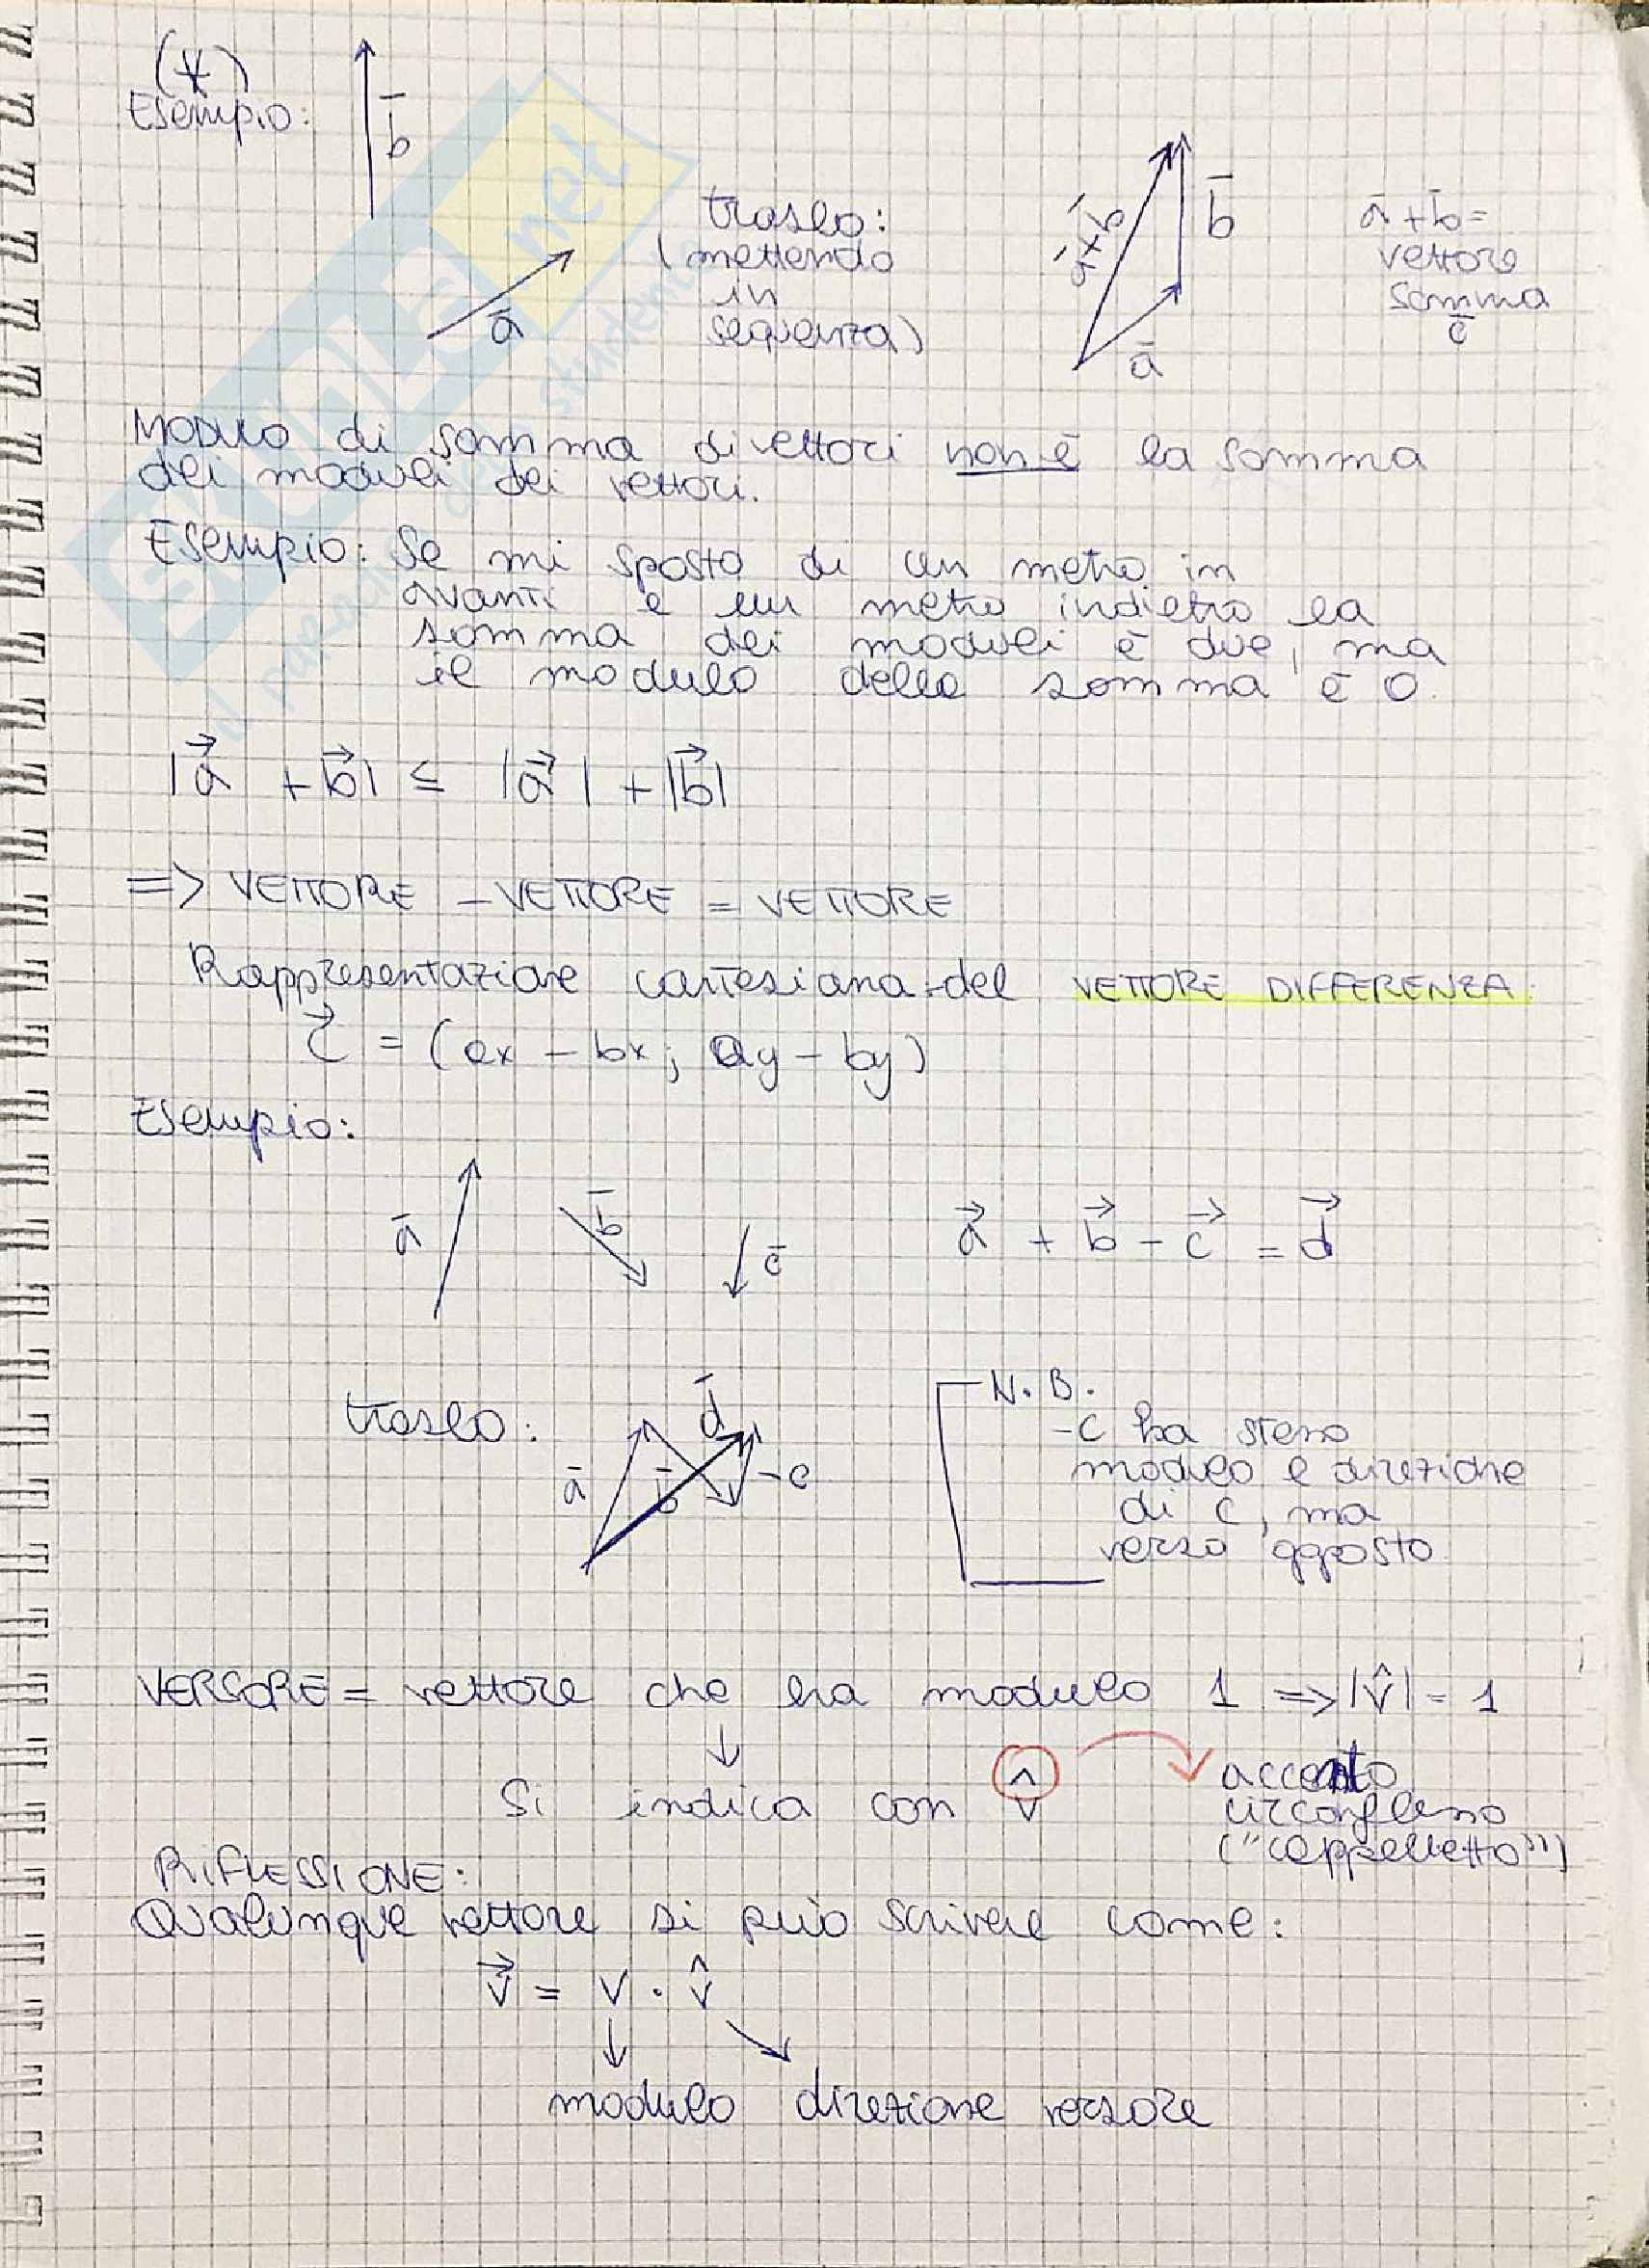 (*)
Esempio:
b̄
ā
traslo:
(mettendo
in
sequenza)
ā+b̄
b̄
ā
ā+b̄=
vettore
somma
c̄
Modulo di somma di vettori non è la somma
dei moduli dei vettori.
Esempio: Se mi sposto di un metro in
avanti e un metro indietro la
somma dei moduli è due, ma
il modulo della somma è 0.
|a⃗ + b⃗| ≤ |a⃗| + |b⃗|
=> VETTORE - VETTORE = VETTORE
Rappresentazione cartesiana del VETTORE DIFFERENZA:
c⃗ = (ax - bx; ay - by)
Esempio:
ā
b̄
c̄
a⃗ + b⃗ - c⃗ = d⃗
traslo:
d̄
ā
b̄
-c
N.B.
-c ha stesso
modulo e direzione
di c, ma
verso opposto
VERSORE = vettore che ha modulo 1 => |v̂| = 1
↓
Si indica con v̂
accento
circonflesso
("cappelletto")
RIFLESSIONE:
Qualunque vettore si può scrivere come:
v⃗ = v · v̂
modulo direzione versore
SKUOLA.net
il paradiso dello studente